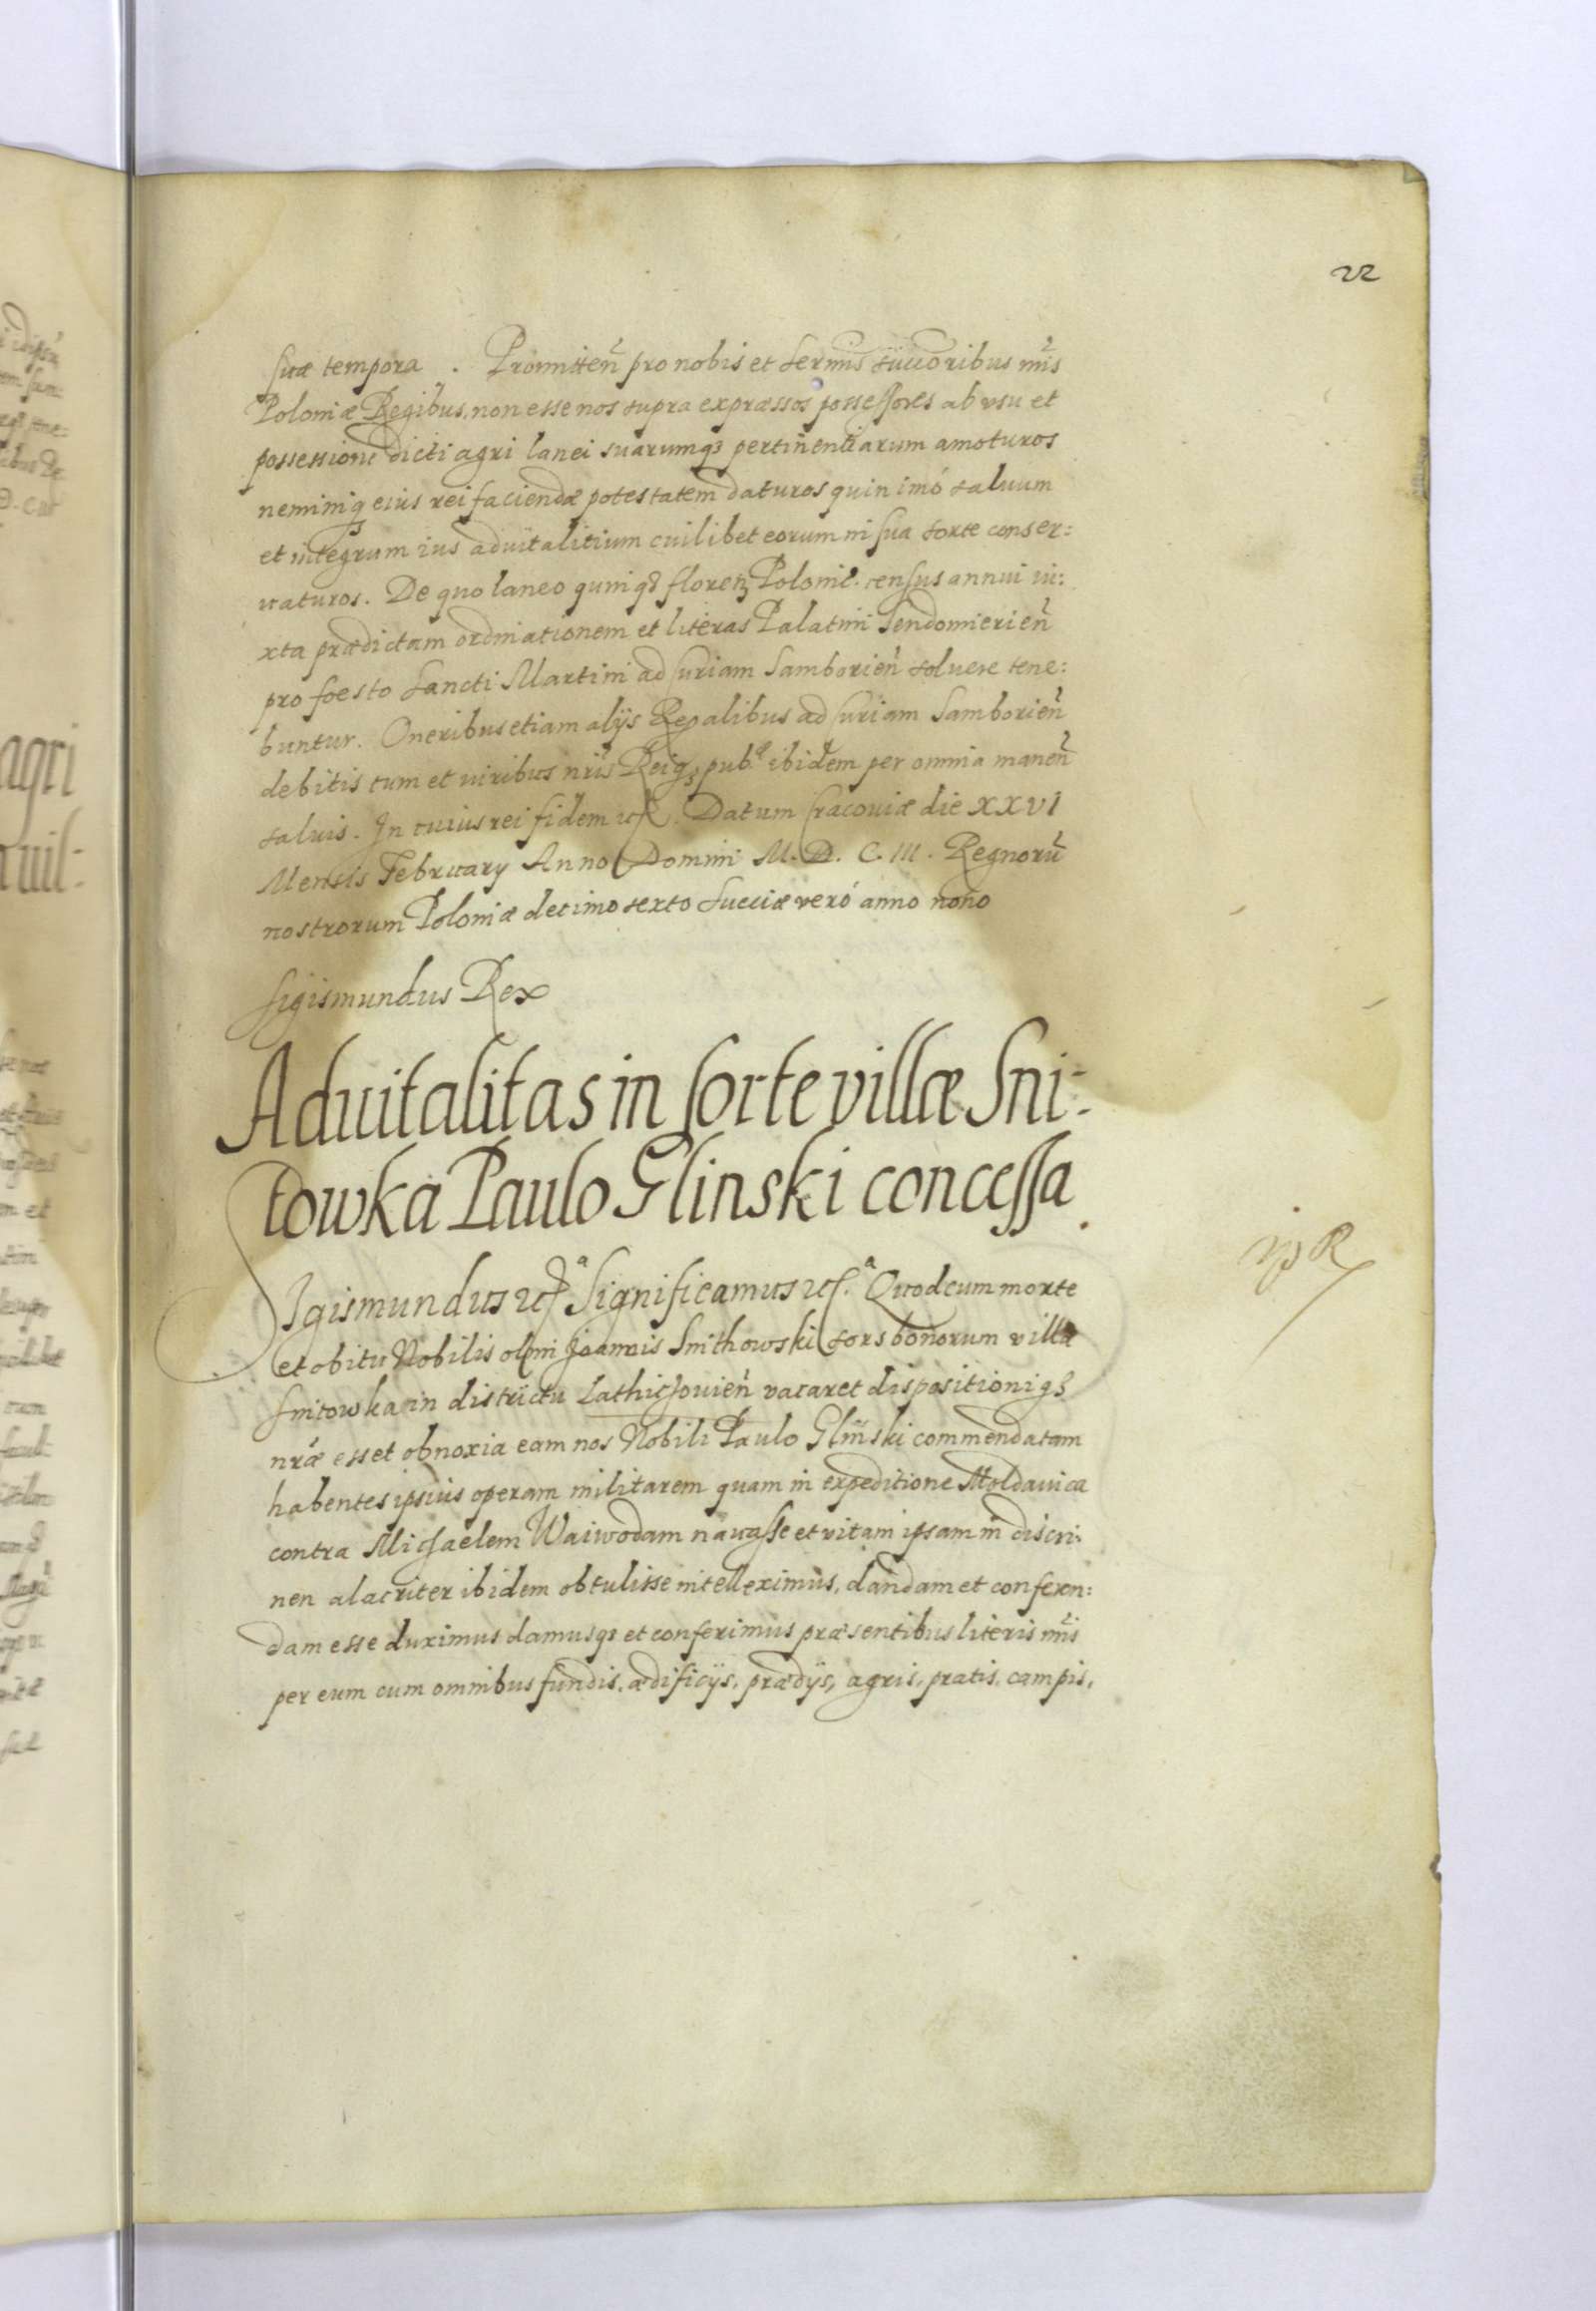 22
suæ tempora. Promitteñ pro nobis et sermis succoribus nr̃is
Poloniæ Regibus, non esse nos supra expræssos possessores ab vsu et
possessione dicti agri lanei suarumq₃ pertinentiarum amoturos
neminiq₃ eius rei faciendæ potestatem daturos quin imó saluum
et integrum ius aduitalitium cuilibet eorum in sua sorte conser:
uaturos. De quo laneo quinq₃ floreñ Polonic. census annui iu:
xta prædictam ordinationem et literas Palatini Sendomierieñ
pro foesto Sancti Martini ad Curiam Samborieñ soluere tene:
buntur. Oneribus etiam alijs Regalibus ad Curiam Samborieñ
debitis tum et iuribus nr̃is Reiq₃ pub.æ ibidem per omnia maneñ
saluis. In cuius rei fidem etc. Datum Cracouiæ die XXVI
Mensis February Anno Domini M. D. C. III. Regnorũ
nostrorum Poloniæ decimo sexto Sueciæ veró anno nono
Sigismundus Rex
Aduitalitas in sorte villæ Sni:
towka Paulo Glinski concessa.
Sigismundus etc.ª Significamus etc.ª Quod cum morte
et obitu Nobilis olim Joannis Snithowski sors bonorum villæ
Snitowka in districtu Lathichouień vacaret dispositioniq₃
nr̃æ esset obnoxia eam nos Nobili Paulo Glinski commendatam
habentes ipsius operam militarem quam in expeditione Moldauica
contra Michaelem Waiwodam nauasse et vitam ipsam in discri:
nen alacriter ibidem obtulisse intelleximus, dandam et conferen:
dam esse duximus damusq₃ et conferimus præsentibus literis nr̃is
per eum cum omnibus fundis, ædificijs, prædijs, agris, pratis, campis,